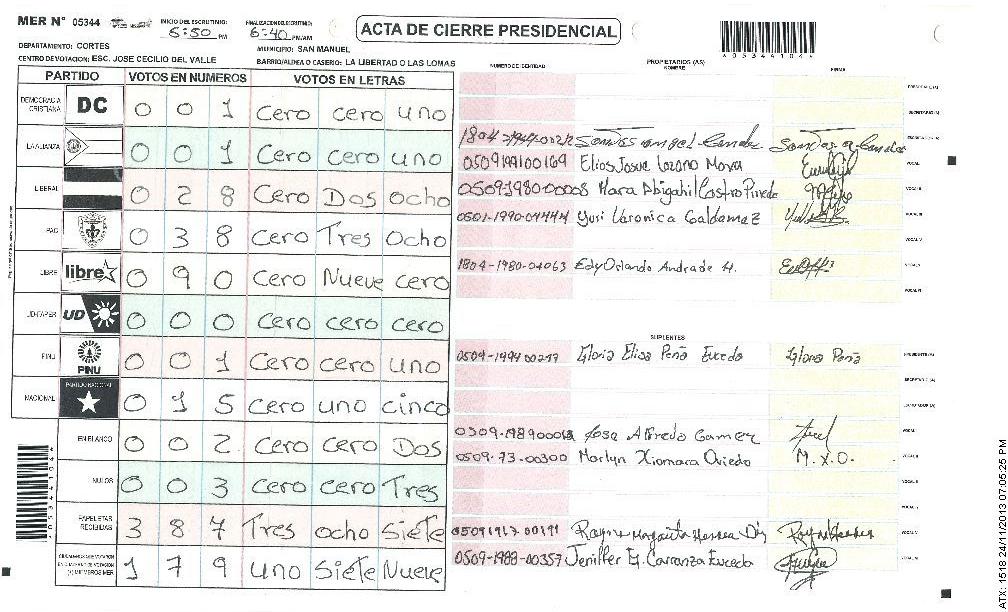 MER Nº 05344
INICIO DEL ESCRUTINIO: 6:50 PM
FINALIZACION DEL ESCRUTINIO: 6:40 PM/AM
ACTA DE CIERRE PRESIDENCIAL
*05344104*
DEPARTAMENTO: CORTES
MUNICIPIO: SAN MANUEL
CENTRO DE VOTACION: ESC. JOSE CECILIO DEL VALLE
BARRIO/ALDEA O CASERIO: LA LIBERTAD O LAS LOMAS
PARTIDO VOTOS EN NUMEROS VOTOS EN LETRAS
DEMOCRACIA CRISTIANA DC 0 0 1 Cero cero uno
LA ALIANZA 0 0 1 Cero Cero uno
LIBERAL 0 2 8 Cero Dos ocho
PAC 0 3 8 Cero Tres Ocho
LIBRE libre 0 9 0 Cero Nueve cero
UD-FAPER UD 0 0 0 Cero cero cero
PINU PINU 0 0 1 Cero cero uno
NACIONAL PARTIDO NACIONAL 0 1 5 Cero uno cinco
EN BLANCO 0 0 2 Cero Cero Dos
NULOS 0 0 3 Cero Cero Tres
PAPELETAS RECIBIDAS 3 8 7 Tres ocho Siete
1 7 9 uno Siete Nueve
NUMERO DE IDENTIDAD
PROPIETARIOS (AS)
NOMBRE
FIRMA
PRESIDENTE (A)
SECRETARIO (A)
ESCRUTADOR (A)
Elios Josue Lozano Mora
VOCAL I
0509-1980-00008 Mara Abigahil Castro Pineda
VOCAL II
0501-1990-04444 Yuri Varonica Galdamez
VOCAL III
VOCAL IV
1804-1980-04063 Edy Orlando Andrade H.
VOCAL V
VOCAL VI
SUPLENTES
0509-1994-00297 Gloria Elisa Peña Euceda Gloria Peña
PRESIDENTE (A)
SECRETARIO (A)
ESCRUTADOR (A)
Rosa Alfredo Gamez
VOCAL I
0509-73-00300 Marlyn Xiomara Oviedo M.X.O.
VOCAL II
VOCAL III
VOCAL IV
VOCAL V
0509-1988-00357 Jeniffer G. Carranza Euceda
VOCAL VI
*05344104*
ATX: 1518 24/11/2013 07:05:25 PM